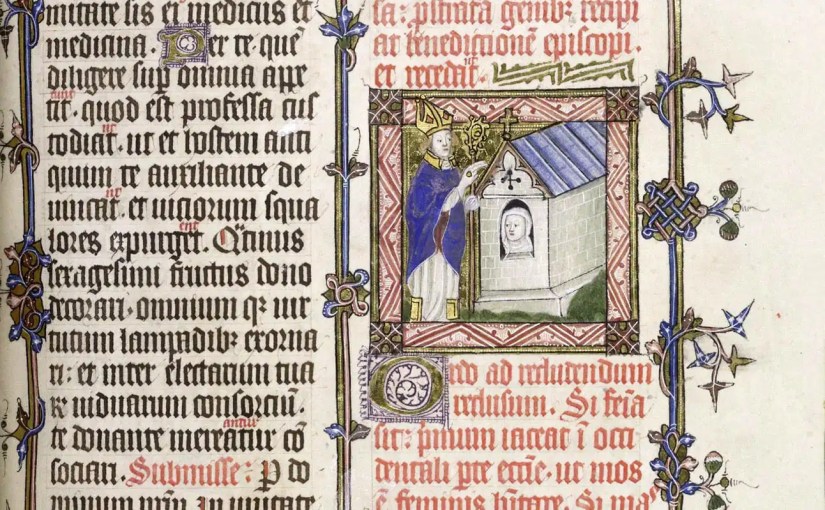 mitate sis et medicus et
medicina. Per te quē
diligere suꝑ omnia appe
tit. quod est professa cus
todiat. ut et hostem anti
quum te auxiliante de
uincat. et uiciorum squa
lores expurget.
sexagesimi fructus dono
decorari. omnium qꝫ uir
tutum lampadibꝫ exorna
ri: et inter electarum tua
rū uiduarum consorciū.
te donante mereatur cō
sociari. Submisse: ꝑ do
minum nrm̄. In unitate
sa: ꝓstrata genibꝫ recipi
at benedictionē episcopi.
et recedat.
Ordo ad recludendum
reclusum. Si feīa
sit: pͥmum iaceat ī occi
dentali ꝑte eccīe. ut mos
ē feminis Si ma